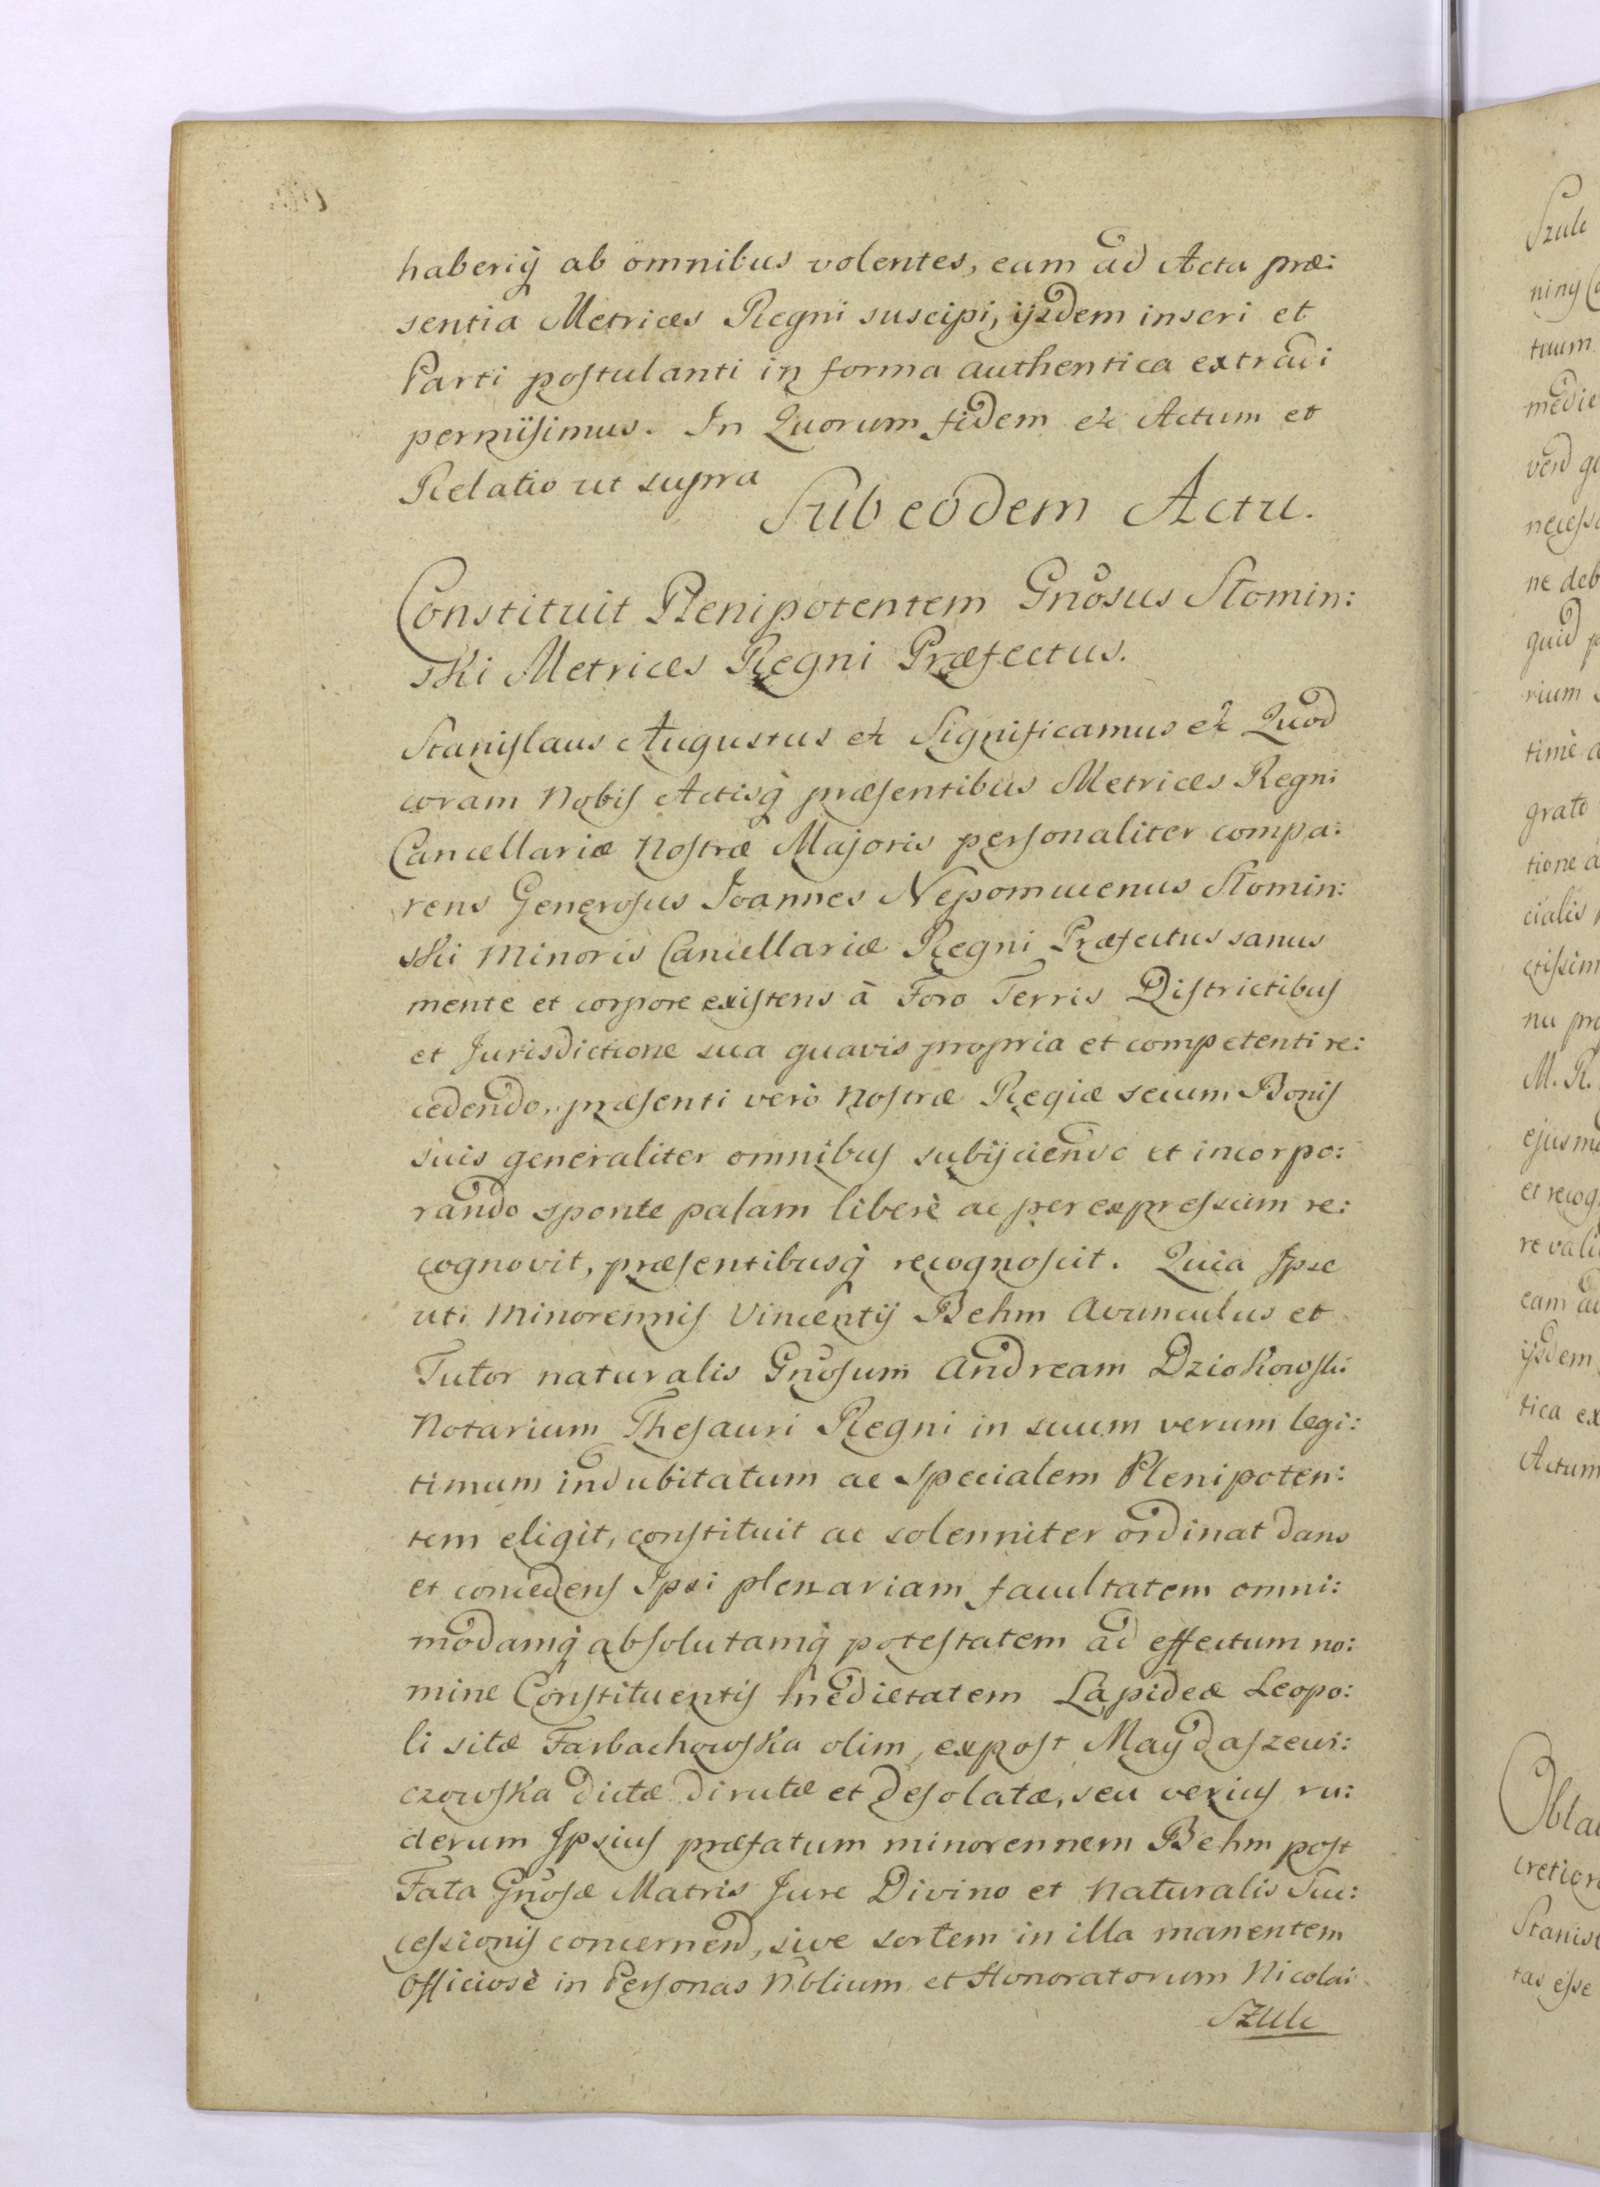 haberiq̃ ab omnibus volentes, eam ad Acta præ:
sentia Metrices Regni suscipi, ijsdem inseri et
Parti postulanti in forma authentica extradi
permisimus. In Quorum fidem etc Actum et
Relatio ut supra
Sub eodem Actu.
Constituit Plenipotentem Gnosus Słomin:
ski Metrices Regni Præfectus.
Stanislaus Augustus etc Significamus etc Quod
coram Nobis Actisq̃ præsentibus Metrices Regni
Cancellariæ Nostræ Majoris personaliter compa:
rens Generosus Joannes Nepomucenus Słomin:
ski Minoris Cancellariæ Regni Præfectus sanus
mente et corpore existens à Foro Terris Districtibus
et Jurisdictione sua quavis propria et competenti re:
cedendo, præsenti verò Nostræ Regiæ secum Bonis
suis generaliter omnibus subijciendo et incorpo:
rando sponte palam liberè ac per expressum re:
cognovit, præsentibusq̃ recognoscit. Quia Ipse
uti Minorennis Vincentij Behm Avunculus et
Tutor naturalis Gnosum Andream Dziokowski
Notarium Thesauri Regni in suum verum legi:
timum indubitatum ac specialem Plenipoten:
tem eligit, constituit ac solenniter ordinat dans
et concedens Ipsi plenariam facultatem omni:
modamq̃ absolutamq̃ potestatem ad effectum no:
mine Constituentis medietatem Lapideæ Leopo:
li sitæ Farbachowska olim, expost Maydaszewi:
czowska dictæ dirutæ et desolatæ, seu verius ru:
derum Ipsius præfatum minorennem Behm post
Fata Gnosæ Matris Jure Divino et Naturalis Suc:
cessionis concernend, sive sortem in illa manentem
Officiosè in Personas Nblium et Honoratorum Nicolai
Szulc
Szulc
niny
tuum
medie
verd
ne deb
quid
rium
timè
grato
tione
cialis
M. R.
et recog
re vali
eam
ijsdem
tica ex
Actum
Obla
Stanis
tas esse